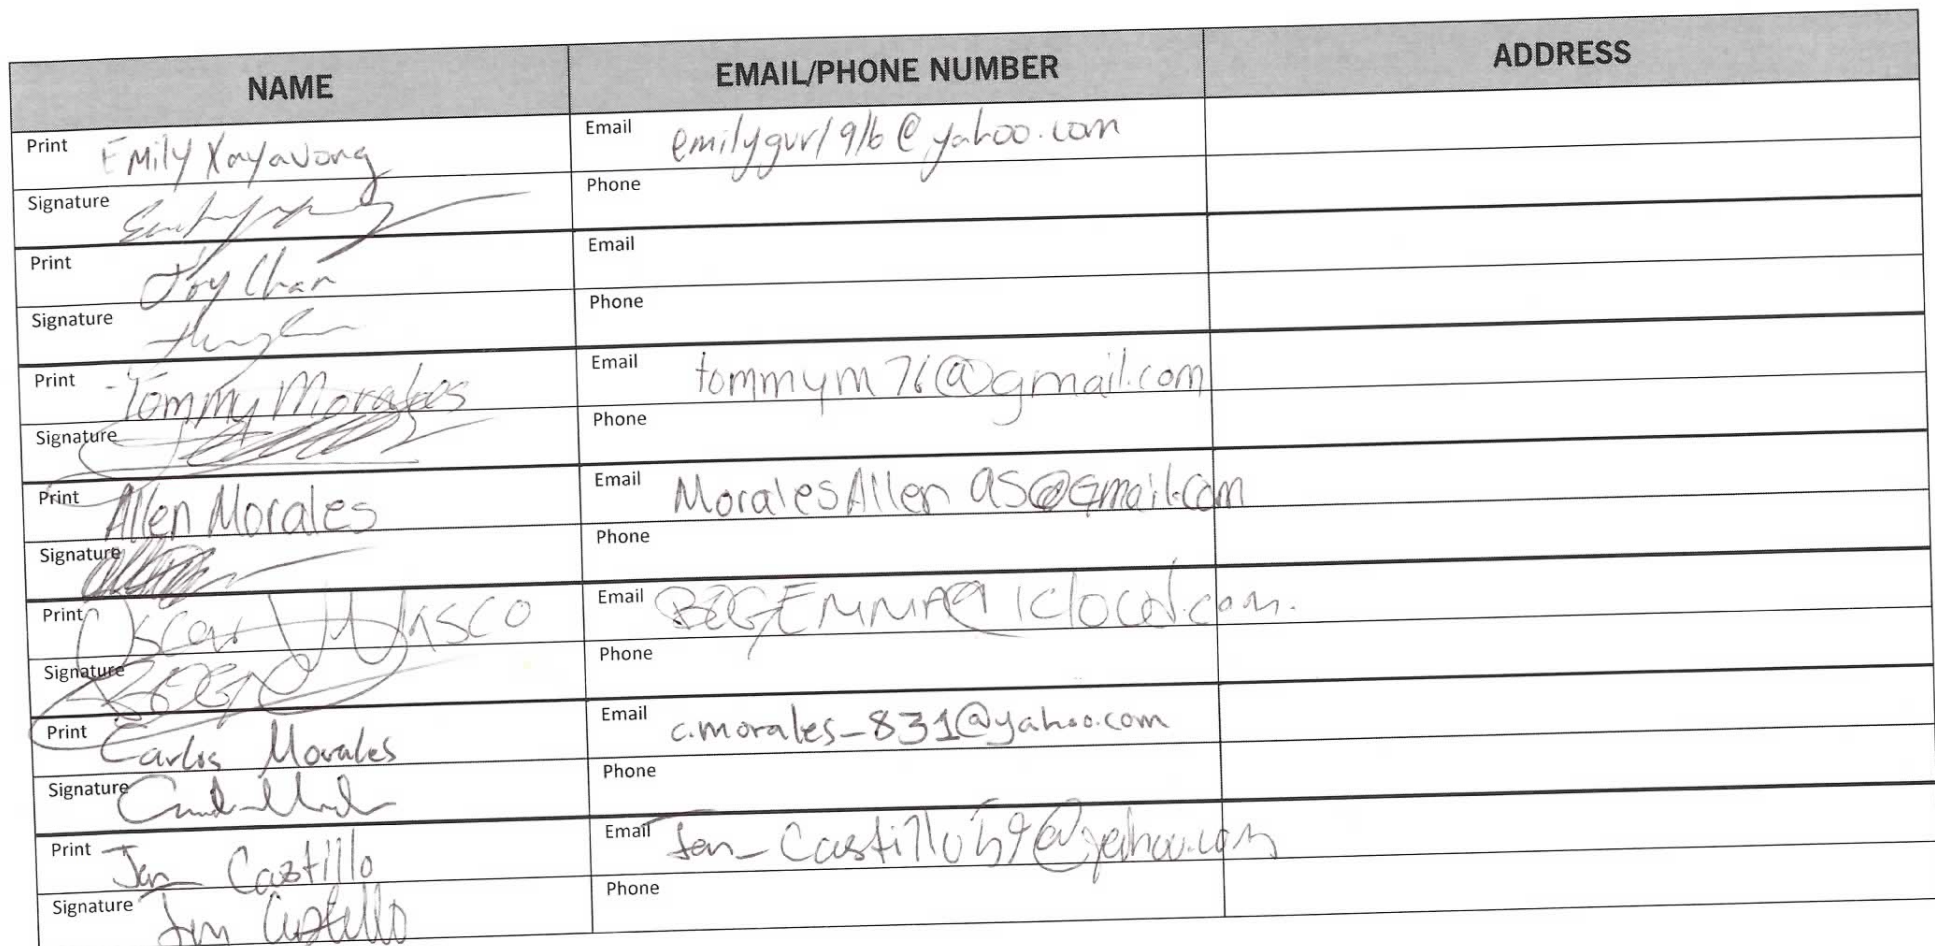 NAME EMAIL/PHONE NUMBER ADDRESS
Print Emily Xayavong Email emilygurl916@yahoo.com
Signature Phone
Print Joy Chan Email
Signature Phone
Print Tommy Morales Email tommym76@gmail.com
Signature Phone
Print Allen Morales Email MoralesAllen95@Gmail.com
Signature Phone
Print Oscar Email
Signature Phone
Print Carlos Morales Email c.morales_831@yahoo.com
Signature Phone
Print Castillo Email
Signature Castillo Phone